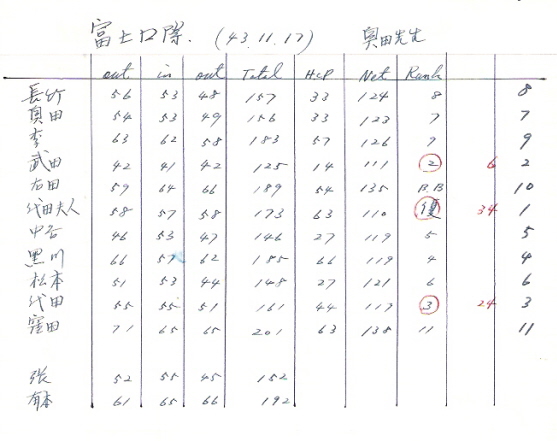 富士口際. (43.11.17) 奥田先生
out in out Total HCP Net Rank
長竹 56 53 48 157 33 124 8 8
真田 54 53 49 156 33 123 7 7
李 63 62 58 183 57 126 9 9
武田 42 41 42 125 14 111 2 6 2
右田 59 64 66 189 54 135 B.B 10
代田夫人 58 57 58 173 63 110 優 34 1
中谷 46 53 47 146 27 119 5 5
黒川 66 57 62 185 66 119 4 4
松本 51 53 44 148 27 121 6 6
代田 55 55 51 161 44 117 3 24 3
窪田 71 65 65 201 63 138 11 11
張 52 55 45 152
有本 61 65 66 192